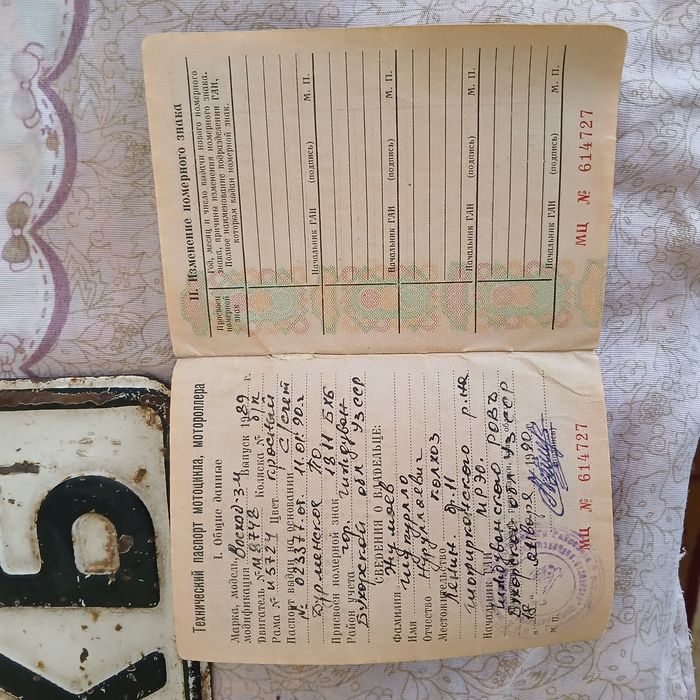 Технический паспорт мотоцикла, мотороллера
I. Общие данные
Марка, модель, Восход-3М
модификация Выпуск 1989 г.
Двигатель № М8748 Коляска № б/н
Рама № И5724 Цвет красный
Паспорт выдан на основании С/счет
№ 023377 от 11.01.90 г.
ПО
Присвоен номерной знак 1811 БХБ
Район учета гор. Гиждуван
Бухарской обл УзССР
СВЕДЕНИЯ О ВЛАДЕЛЬЦЕ:
Фамилия Жумоев
Имя
Отчество Нуруллаевич
Местожительство колхоз
Ленин.
р-на
Начальник ГАИ МРЭО.
Гиждуванского РОВД
Бухарской обл УзССР
18 января 1990
М. П.
МЦ № 614727
II. Изменение номерного знака
Присвоен номерной знак
Год, месяц и число выдачи нового номерного
знака, причины изменения номерного знака.
Полное наименование подразделения ГАИ,
которым выдан номерной знак.
Начальник ГАИ (подпись) М. П.
Начальник ГАИ (подпись) М. П.
Начальник ГАИ (подпись) М. П.
Начальник ГАИ (подпись) М. П.
МЦ № 614727
ХБ